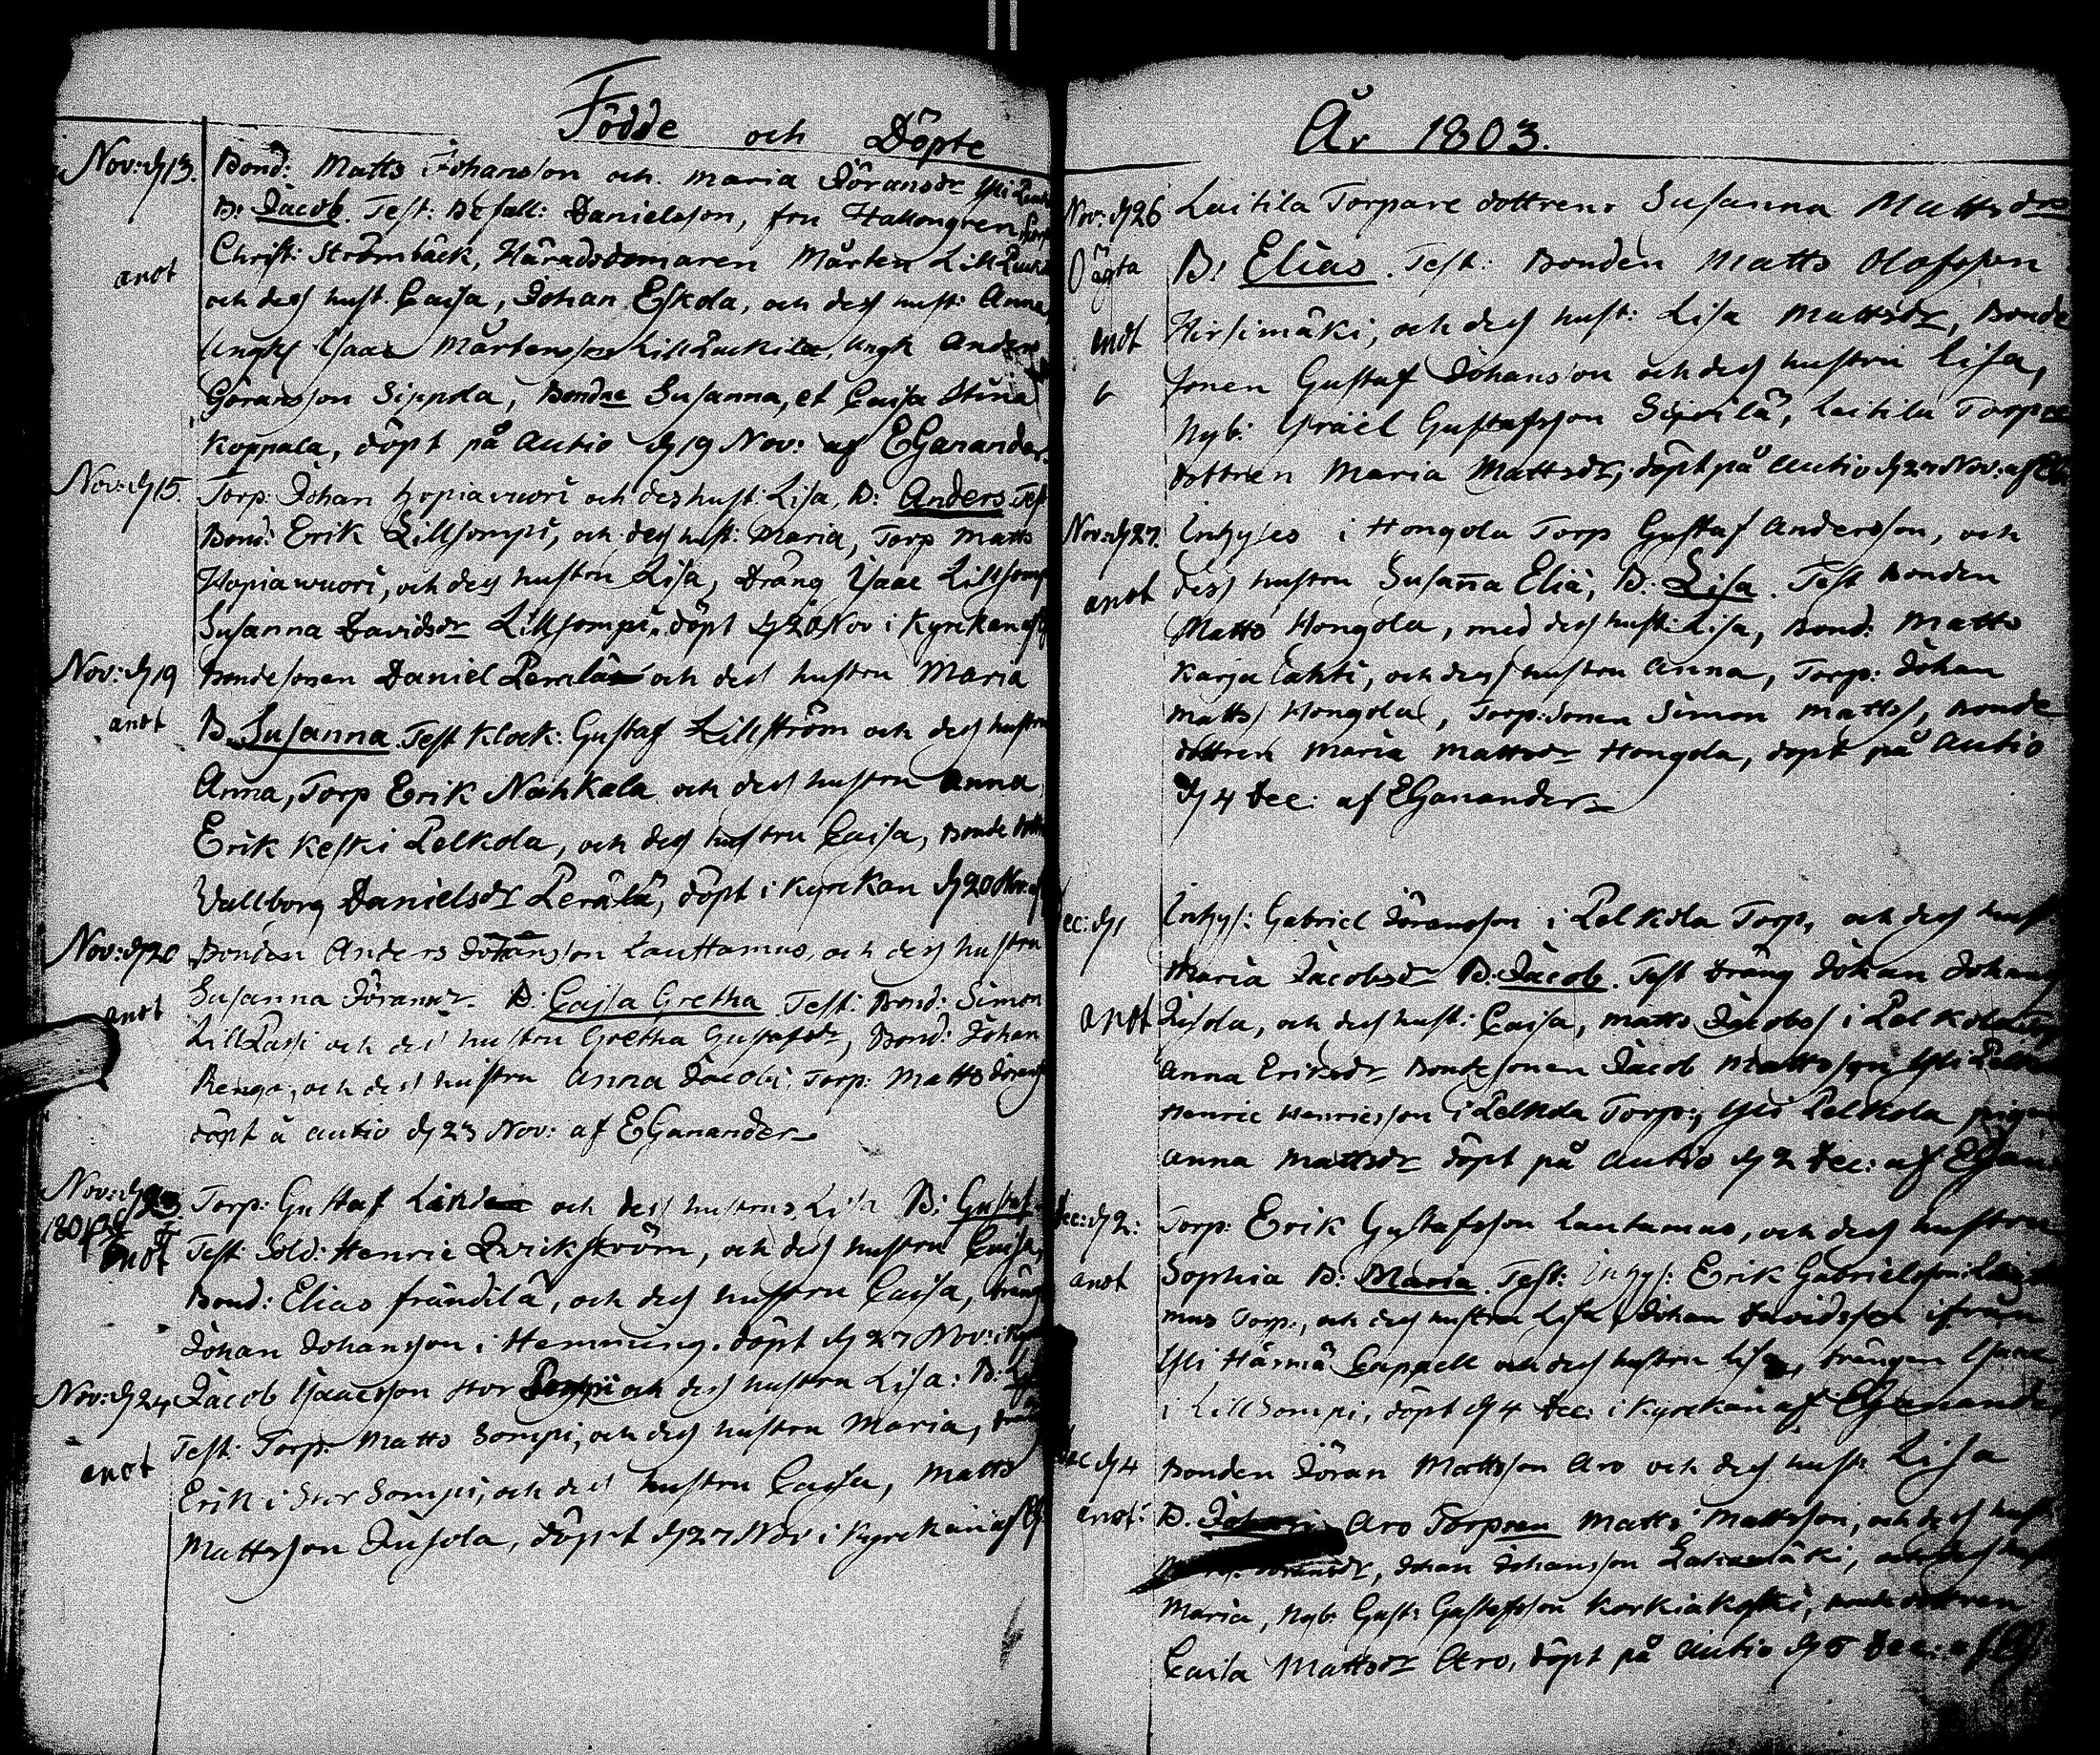 Födde och Döpte
Nov: d 13. Bond: Matts Johansson och Maria Göransdr Yli
B: Jacob. Test: Befall: Danielsson, fru Hallongren
Christ: Strömbäck, Häradsdomaren Mårten Lill
anot
och dess hust. Caisa, Johan Eskola, och dess hust: Anna,
Ungk Isaac Mårtensson Lill, Ungk Anders
Göransson Sippola, Bondne Susanna, et Caisa Stina
Koppala, döpt på Autio d 19 Nov: af EGanander.
Nov: d 15. Torp: Johan Hopiavuori och des hust: Lisa, B: Anders Test
Bond: Erik Lillsompi, och dess hust: Maria, Torp Matts
Hopiawuori, och dess hustru Lisa, Dräng Isaac Lillsomp
Susanna Davidsdr Lillsompi, döpt d 20 Nov i Kyrkan af
Nov: d 19 Bondesonen Daniel Perälä och dess hustru Maria
anot
B. Susanna Test Klock: Gustaf Lillström och dess hustru
Anna, Torp Erik Nahkala och dess hustru Anna
Erik Keski Pelkola, och dess hustru Caisa, Bonde
Vallborg Danielsdr Perälä, döpt i Kyrkan d 20 Nov: af
Nov: d 20 Bonden Anders Johansson Lauttamus, och dess hustru
Susanna Göransdr B: Caisa Gretha Test: Bond: Simon
anot
LillPassi och des hustru Gretha Gustafsdr, Bond: Johan
Renga, och dess hustru Anna Jacobi, Torp: Matts Görans
döpt å Autio d 23 Nov: af EGanander
Nov: d 23 Torp: Gustaf och dess hustru Lisa B: Gustaf
1803
anot
Test: Sold: Henric Qvickström, och dess hustru Caisa,
Bond: Elias Frändilä, och dess hustru Caisa, dräng
Johan Johansson i Hemming. döpt d 27 Nov: i
Nov: d 24 Jacob Isaacsson Stor Sompi och dess hustru Lisa: B:
Test: Torp: Matts Sompi, och dess hustru Maria,
anot
Erik i Stor Sompi, och des hustru Caisa, Matts
Mattsson Jusola, döpt d 27 Nov i Kyrkan af
År 1803.
Nov: d 26 Laitila Torpare dottren Susanna Mattsdr
Oägta B: Elias. Test: Bonden Matts Olofsson
Hirsimäki, och dess hust: Lisa Mattsdr, Bonde
anot
sonen Gustaf Johansson och dess hustru Lisa,
Nyb: Israël Gustafsson Sipilä, Laitila Torpare
dottren Maria Mattsdr, döpt på Autio d 27 Nov: af
Nov: d 27. Inhyses i Hongola Torp Gustaf Andersson, och
anot dess hustru Susanna Eliä, B: Lisa. Test Bonden
Matts Hongola, med dess hust: Lisa, Bond: Matts
Karjalahti, och dess hustru Anna, Torp: Johan
Matts Hongola, Torp: sonen Simon Matts, Bonde
dottren Maria Mattsdr Hongola, döpt på Autio
d 4 Dec: af EGanander
Dec: d 1 Inhys: Gabriel Göransson i Pelkola Torp, och dess hust
Maria Jacobsdr B: Jacob. Test Dräng Johan Johans
anot och dess hust: Caisa, Matts Jacobs i Pelkola
Anna Eriksdr Bondesonen Jacob Mattsson Yli
Henric Henricsson i Pelkola Torp, Yli Pelkola pigan
Anna Mattsdr döpt på Autio d 2 Dec: af EGanan
Dec: d 2: Torp: Erik Gustafsson Lautamus, och dess hustru
anot Sophia B: Maria. Test: Inhys: Erik Gabrielsson
mus Torp., och dess hustru Lisa, Johan Davidsson ifrån
Yli Härmä Cappell och dess hustru Lisa, drängen Isaac
i LillSompi, döpt d 4 Dec: i Kyrkan af EGanander
Dec d 4 Bonden Göran Mattsson Aro och dess hust: Lisa
anot: B. Johan Aro Torparen Matts Mattsson, och dess hust
Göransdr, Johan Johansson och dess hust
Maria, Nyb: Gust: Gustafsson Korkiakoski, Bonde dottren
Caisa Mattsdr Aro, döpt på Autio d 6 Dec: af